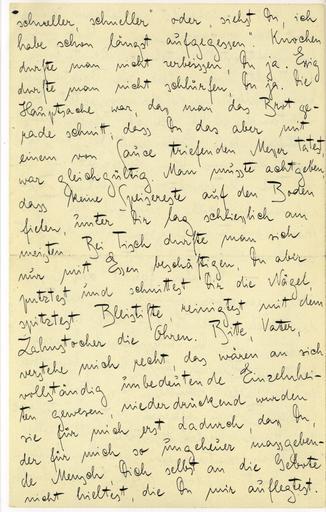 schneller, schneller" oder, siehst Du, ich
habe schon längst aufgegessen". Knochen
durfte man nicht zerbeissen, Du ja. Essig
durfte man nicht schlürfen, Du ja. Die
Hauptsache war, dass man das Brot ge-
rade schnitt, dass Du das aber mit
einem von Sauce triefenden Messer tatest,
war gleichgültig. Man musste achtgeben,
dass keine Speisereste auf den Boden
fielen, unter Dir lag schliesslich am
meisten. Bei Tisch durfte man sich
nur mit Essen beschäftigen, Du aber
putztest und schnittest Dir die Nägel,
spitztest Bleistifte, reinigtest mit dem
Zahnstocher die Ohren. Bitte, Vater,
verstehe mich recht, das wären an sich
vollständig unbedeutende Einzelnhei-
ten gewesen, niederdrückend wurden
sie für mich erst dadurch, dass Du,
der für mich so ungeheuer massgeben-
de Mensch Dich selbst an die Gebote
nicht hieltest, die Du mir auflegtest.